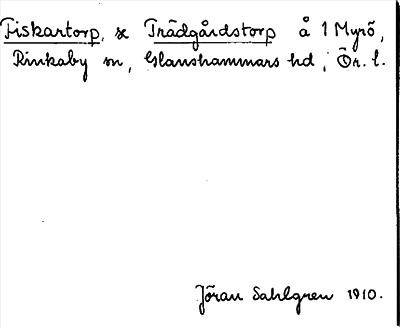 Fiskartorp, & Trädgårdstorp å 1 Myrö,
Rinkaby sn, Glanshammars hd, Ör. l.
Jöran Sahlgren 1910.